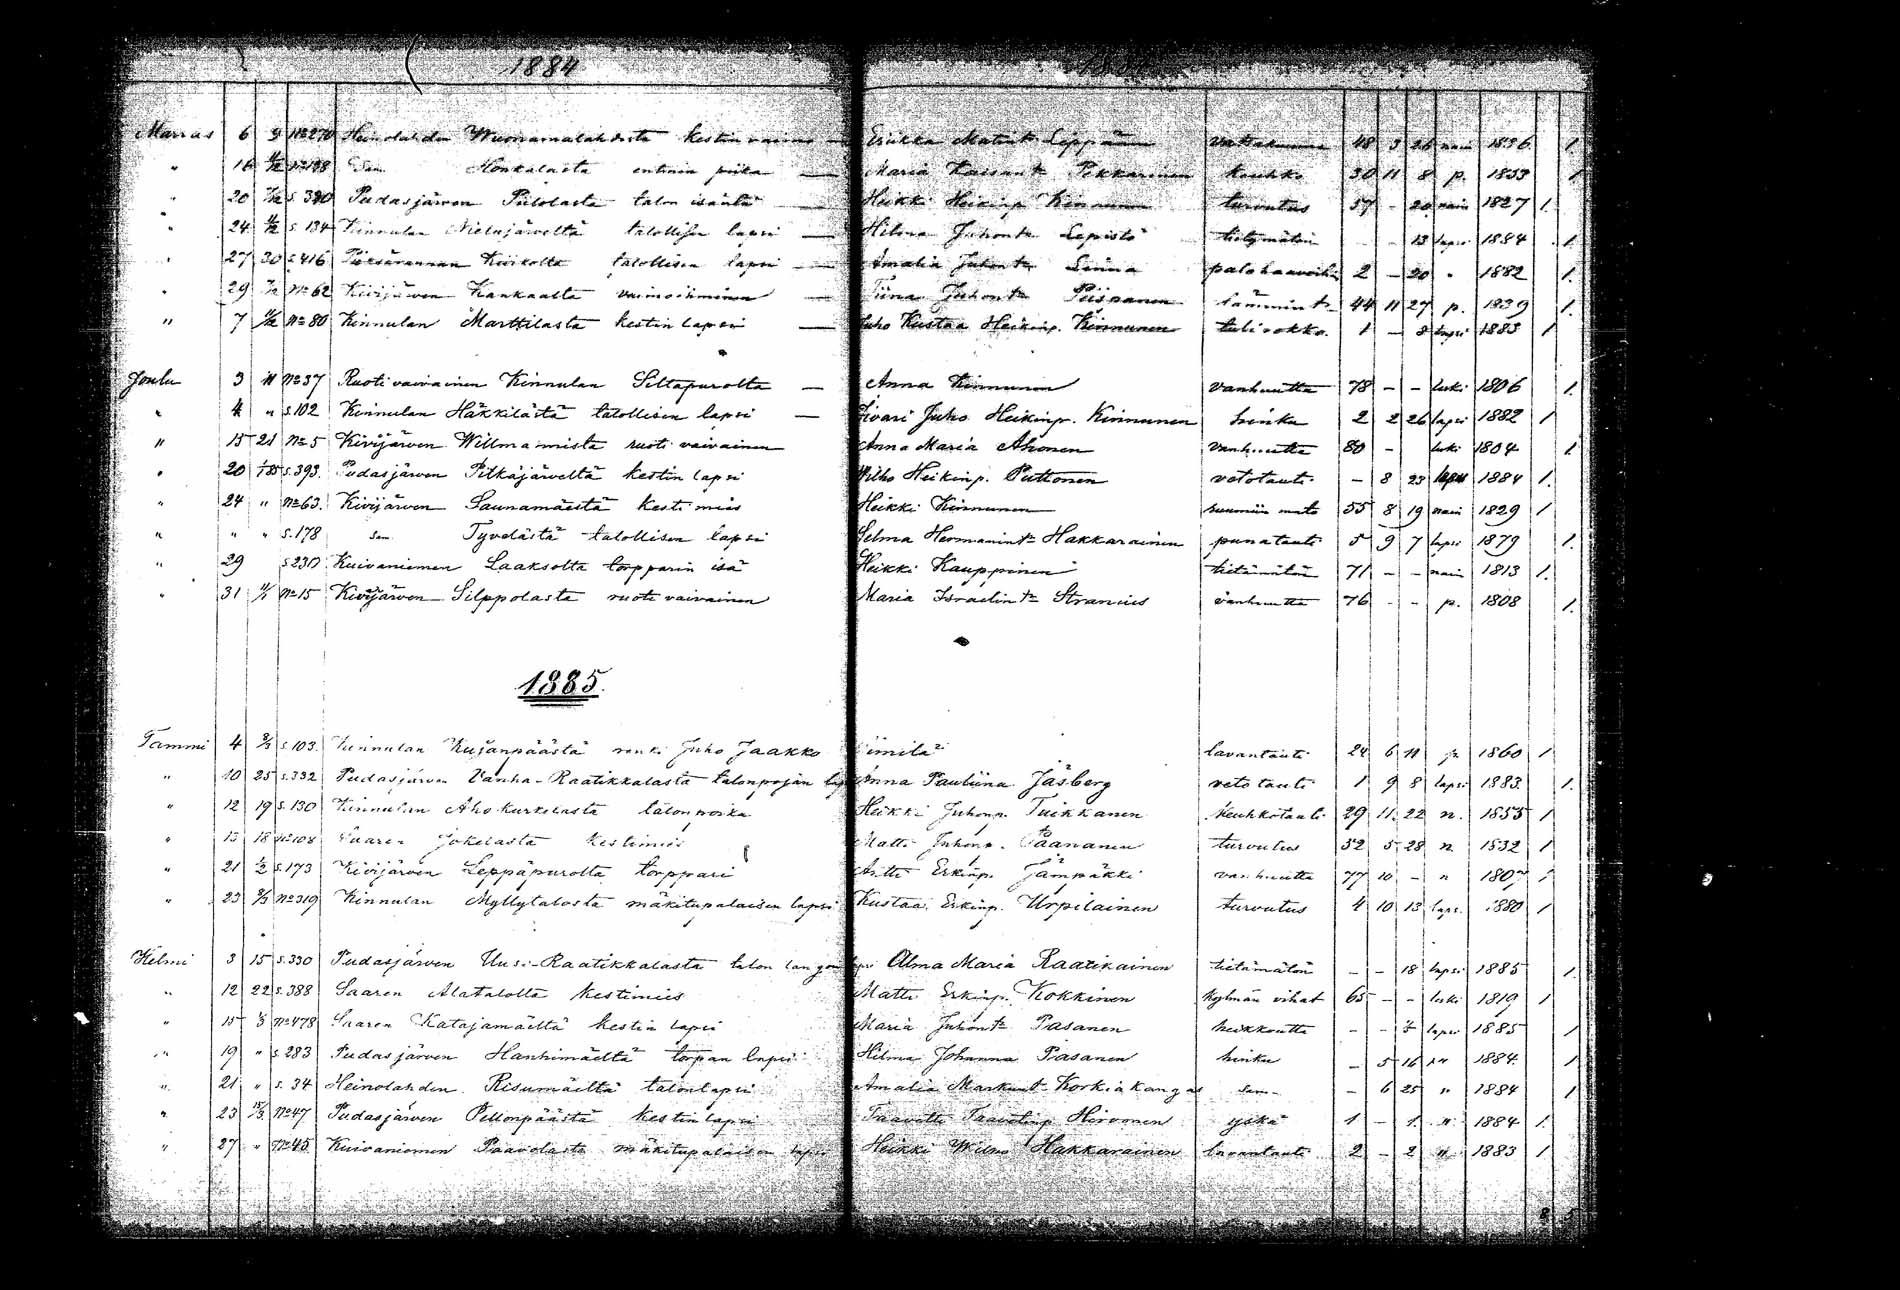 1884
Marras 6 9 No 270 Heinolahden Wuonamalahdesta kestin vaimo — Eriikka Matint. Leppänen 48 3 26 nain 1836 1
" 16 No 198 Sam. Honkalasta entinen piika — Maria Kaisant. Pekkarinen keuhko 30 11 8 p. 1853 1
" 20 s. 390 Pudasjärven Pulolasta talon isäntä — Heikki Heikinp. Kinnunen turvotus 57 - 20 nain 1827 1.
" 24 s. 134 Kinnulan Nielujärveltä talollisen lapsi — Hilma Juhont. Lepistö tietymätön - - 13 lapsi 1884 1.
" 27 30 s. 416 Kiirikolta talollisen lapsi — Amalia Juhont. Linna palohaavoihin 2 - 20 " 1882 1.
" 29 No 62 Kivijärven Kankaalta vaimoihminen — Tiina Juhont. Piispanen lämmint. 44 11 27 p. 1839 1.
" 7 No 80 Kinnulan Marttilasta kestin lapsi — Juho Kustaa Heikinp. Kinnunen tulirokko. 1 - 8 lapsi 1883 1
Joulu 3 11 No 37 Ruotivaivainen Kinnulan Siltapurolta — Anna Kinnunen vanhuutta 78 - - leski 1806 1.
" 4 " s. 102 Kinnulan Häkkilästä talollisen lapsi — Iivari Juho Heikinp. Kinnunen hinku 2 2 26 lapsi 1882 1
" 15 21 No 5 Kivijärven Willmamista ruotivaivainen Anna Maria Ahonen vanhuutta 80 - leski 1804 1
" 20 1/85 s. 393. Pudasjärven Pitkäjärveltä kestin lapsi Wilho Heikinp. Puttonen vetotauti - 8 23 lapsi 1884 1.
" 24 " No 63. Kivijärven Saunamäestä kesti mies Heikki Kinnunen 55 8 19 nain 1829 1
" " " s. 178 sam. Tyvelästä talollisen lapsi Selma Hermannint. Hakkarainen punatauti 5 9 7 lapsi 1879 1.
" 29 s 230 Kuivaniemen Laaksolta torpparin isä Heikki Kauppinen tietämätön 71 - - nain 1813 1.
" 31 No 15 Kivijärven Silppolasta ruotivaivainen Maria Israelint. Strancius vanhuutta 76 - - p. 1808 1.
1885.
Tammi 4 s. 103. Kinnulan Kujanpäästä renki Juho Jaakko Wiinilä lavantauti 24 6 11 1860 1
" 10 25 s. 332 Pudasjärven Vanha-Raatikkalasta talonpojan lapsi Anna Pauliina Jäsberg vetotauti 1 9 8 lapsi 1883. 1.
" 12 19 s. 130 Kinnulan Ahokurkelasta talonpoika Heikki Juhonp. Tuikkanen keuhkotauti 29 11. 22 n. 1855 1
" 13 18 No 108 Saaren Jokelasta kestimies Matti Juhonp. Paananen turvotus 52 5 28 n. 1832 1
" 21 1/2 s. 173 Kivijärven Leppäpurolta torppari Antti Erkinp. Jämpäkki vanhuutta 77 10 - n 1807 1
" 23 No 319 Kinnulan Myllytalosta mäkitupalaisen lapsi Kustaa Erkinp. Urpilainen turvotus 4 10 13 laps. 1880 1
Helmi 3 15 s. 330 Pudasjärven Uusi-Raatikkalasta talon langon lapsi Alma Maria Raatikainen tietämätön - - 18 lapsi 1885 1.
" 12 22 s. 388 Saaren Alatalolta kestimies Matti Erkinp. Kokkinen kylmän vihat 65 - - leski 1819 1
" 15 1/3 No 478 Saaren Katajamäeltä kestin lapsi Maria Juhont. Pasanen heikkoutta - - 7 lapsi 1885 1
" 19 " s. 283 Pudasjärven Hanhimäeltä torpan lapsi Hilma Johanna Pasanen hinku - 5 16 " 1884. 1
" 21 " s. 34 Heinolahden Risumäeltä talonlapsi Amalia Markunt. Korkiakangas sam- - 6 25 " 1884 1
" 23 15/3 No 47 Pudasjärven Pellonpäästä kestin lapsi Taavetti Taavetinp. Hirvonen yskä 1 - 1. " 1884 1.
" 27 " No 45 Kuivaniemen Paavolasta mäkitupalaisen lapsi Heikki Wilho Hakkarainen lavantauti 2 - 2 " 1883 1
8 5